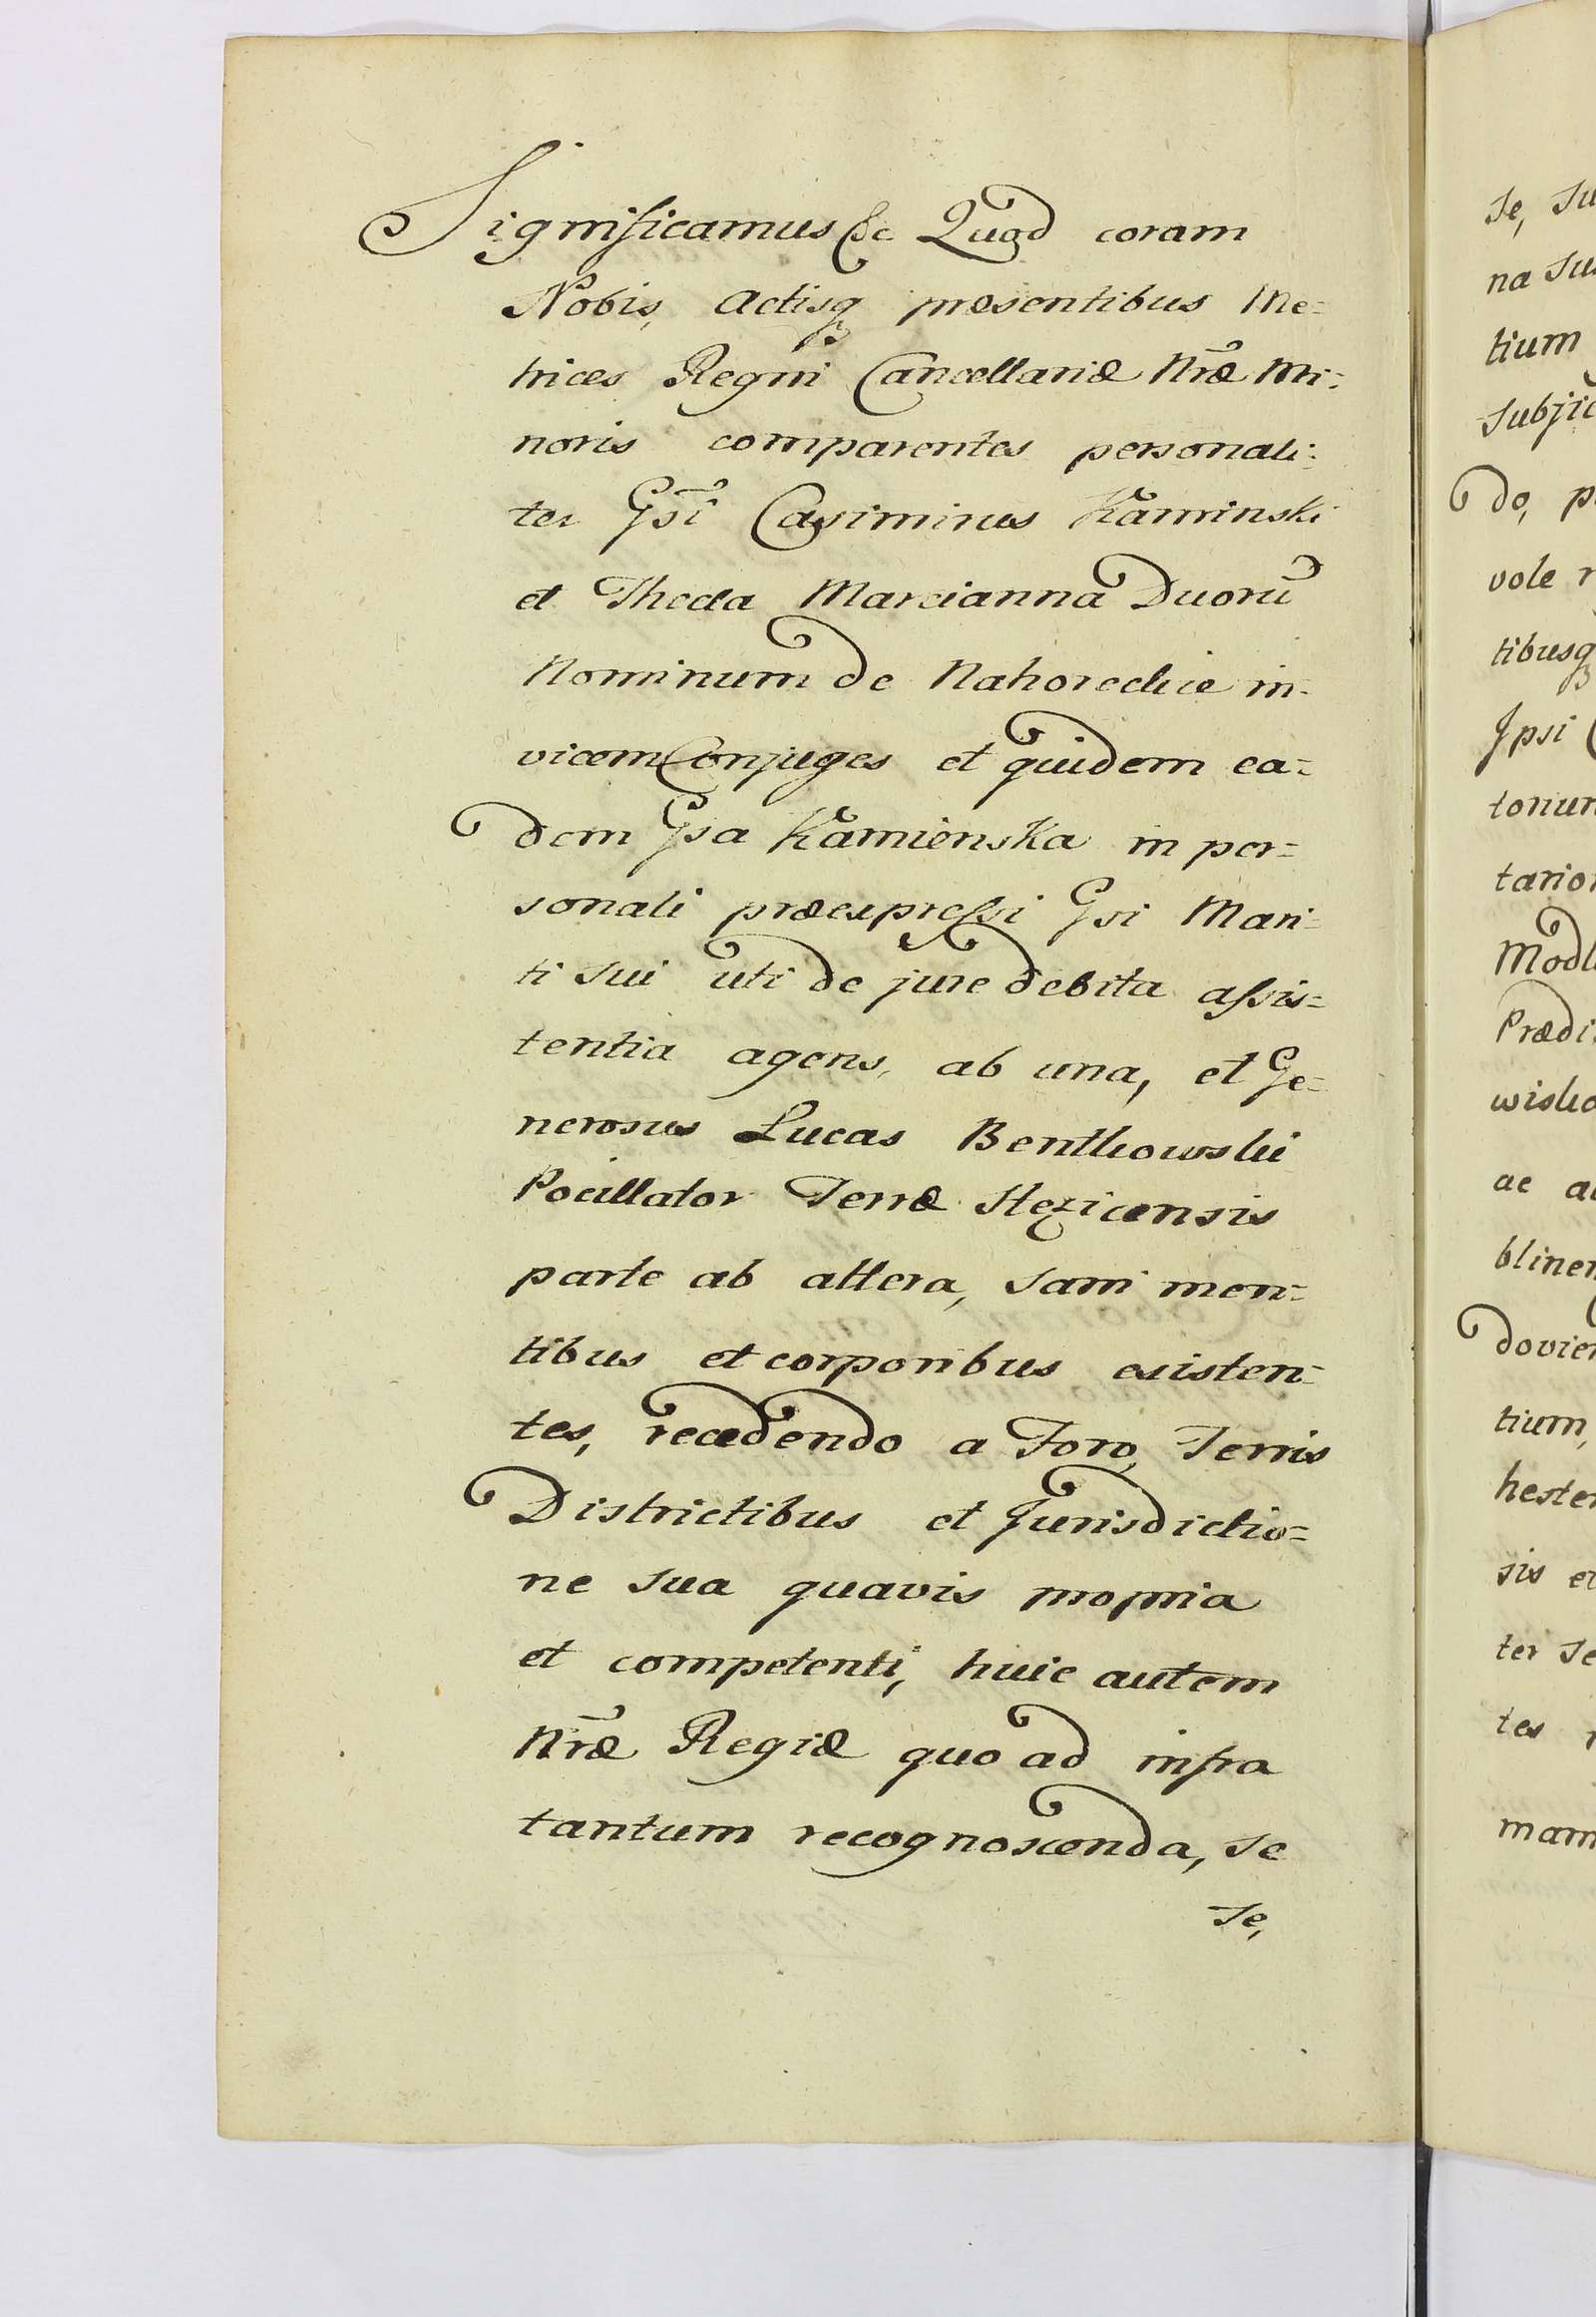 Significamus &c Quod coram
Nobis, Actisq; præsentibus Me=
trices Regni Cancellariæ Nræ Mi=
noris comparentes personali=
ter Gsi Casimirus Kaminski
et Thecla Marcianna Duorũ
Nominum de Nahoreckie in=
vicem Conjuges et quidem ea=
dem Gsa Kamienska in per=
sonali præexpressi Gsi Mari=
ti sui uti de jure debita assis=
tentia agens, ab una, et Ge=
nerosus Lucas Bentkowski
Pocillator Terræ Stezicensis
parte ab altera, sani men=
tibus et corporibus existen=
tes, recedendo a Foro, Terris
Districtibus et Jurisdictio=
ne sua quavis propria
et competenti, huic autem
Nræ Regiæ quo ad infra
tantum recognoscenda, se
se,
se, su
na su
tium
subjic
do, p
vole r
tibusq;
Ipsi C
torum
tarior
Modl
Prædi
wisko
ac a
bliner
dovien
tium,
hester
sis et
ter se
tes r
mam